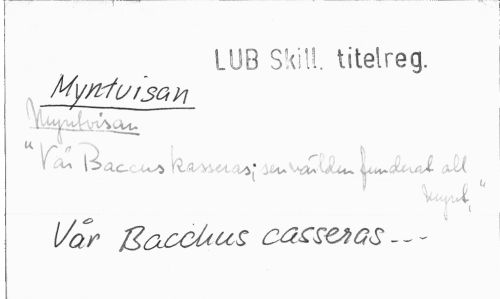 LUB Skill. titelreg.
Myntvisan
Myntvisan
"Vår Baccus kasseras; sen världen funderat all
mynt,"
Vår Bacchus casseras---